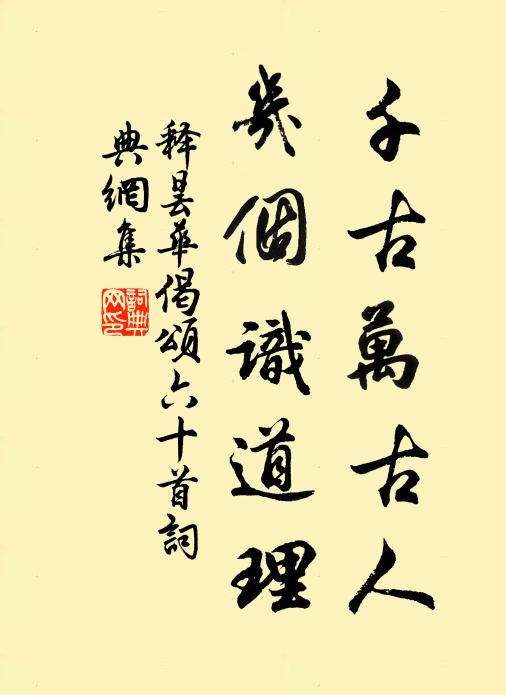 千古萬古人
幾個識道理
释曇華偈頌六十首詞
典網集
詞典
网印